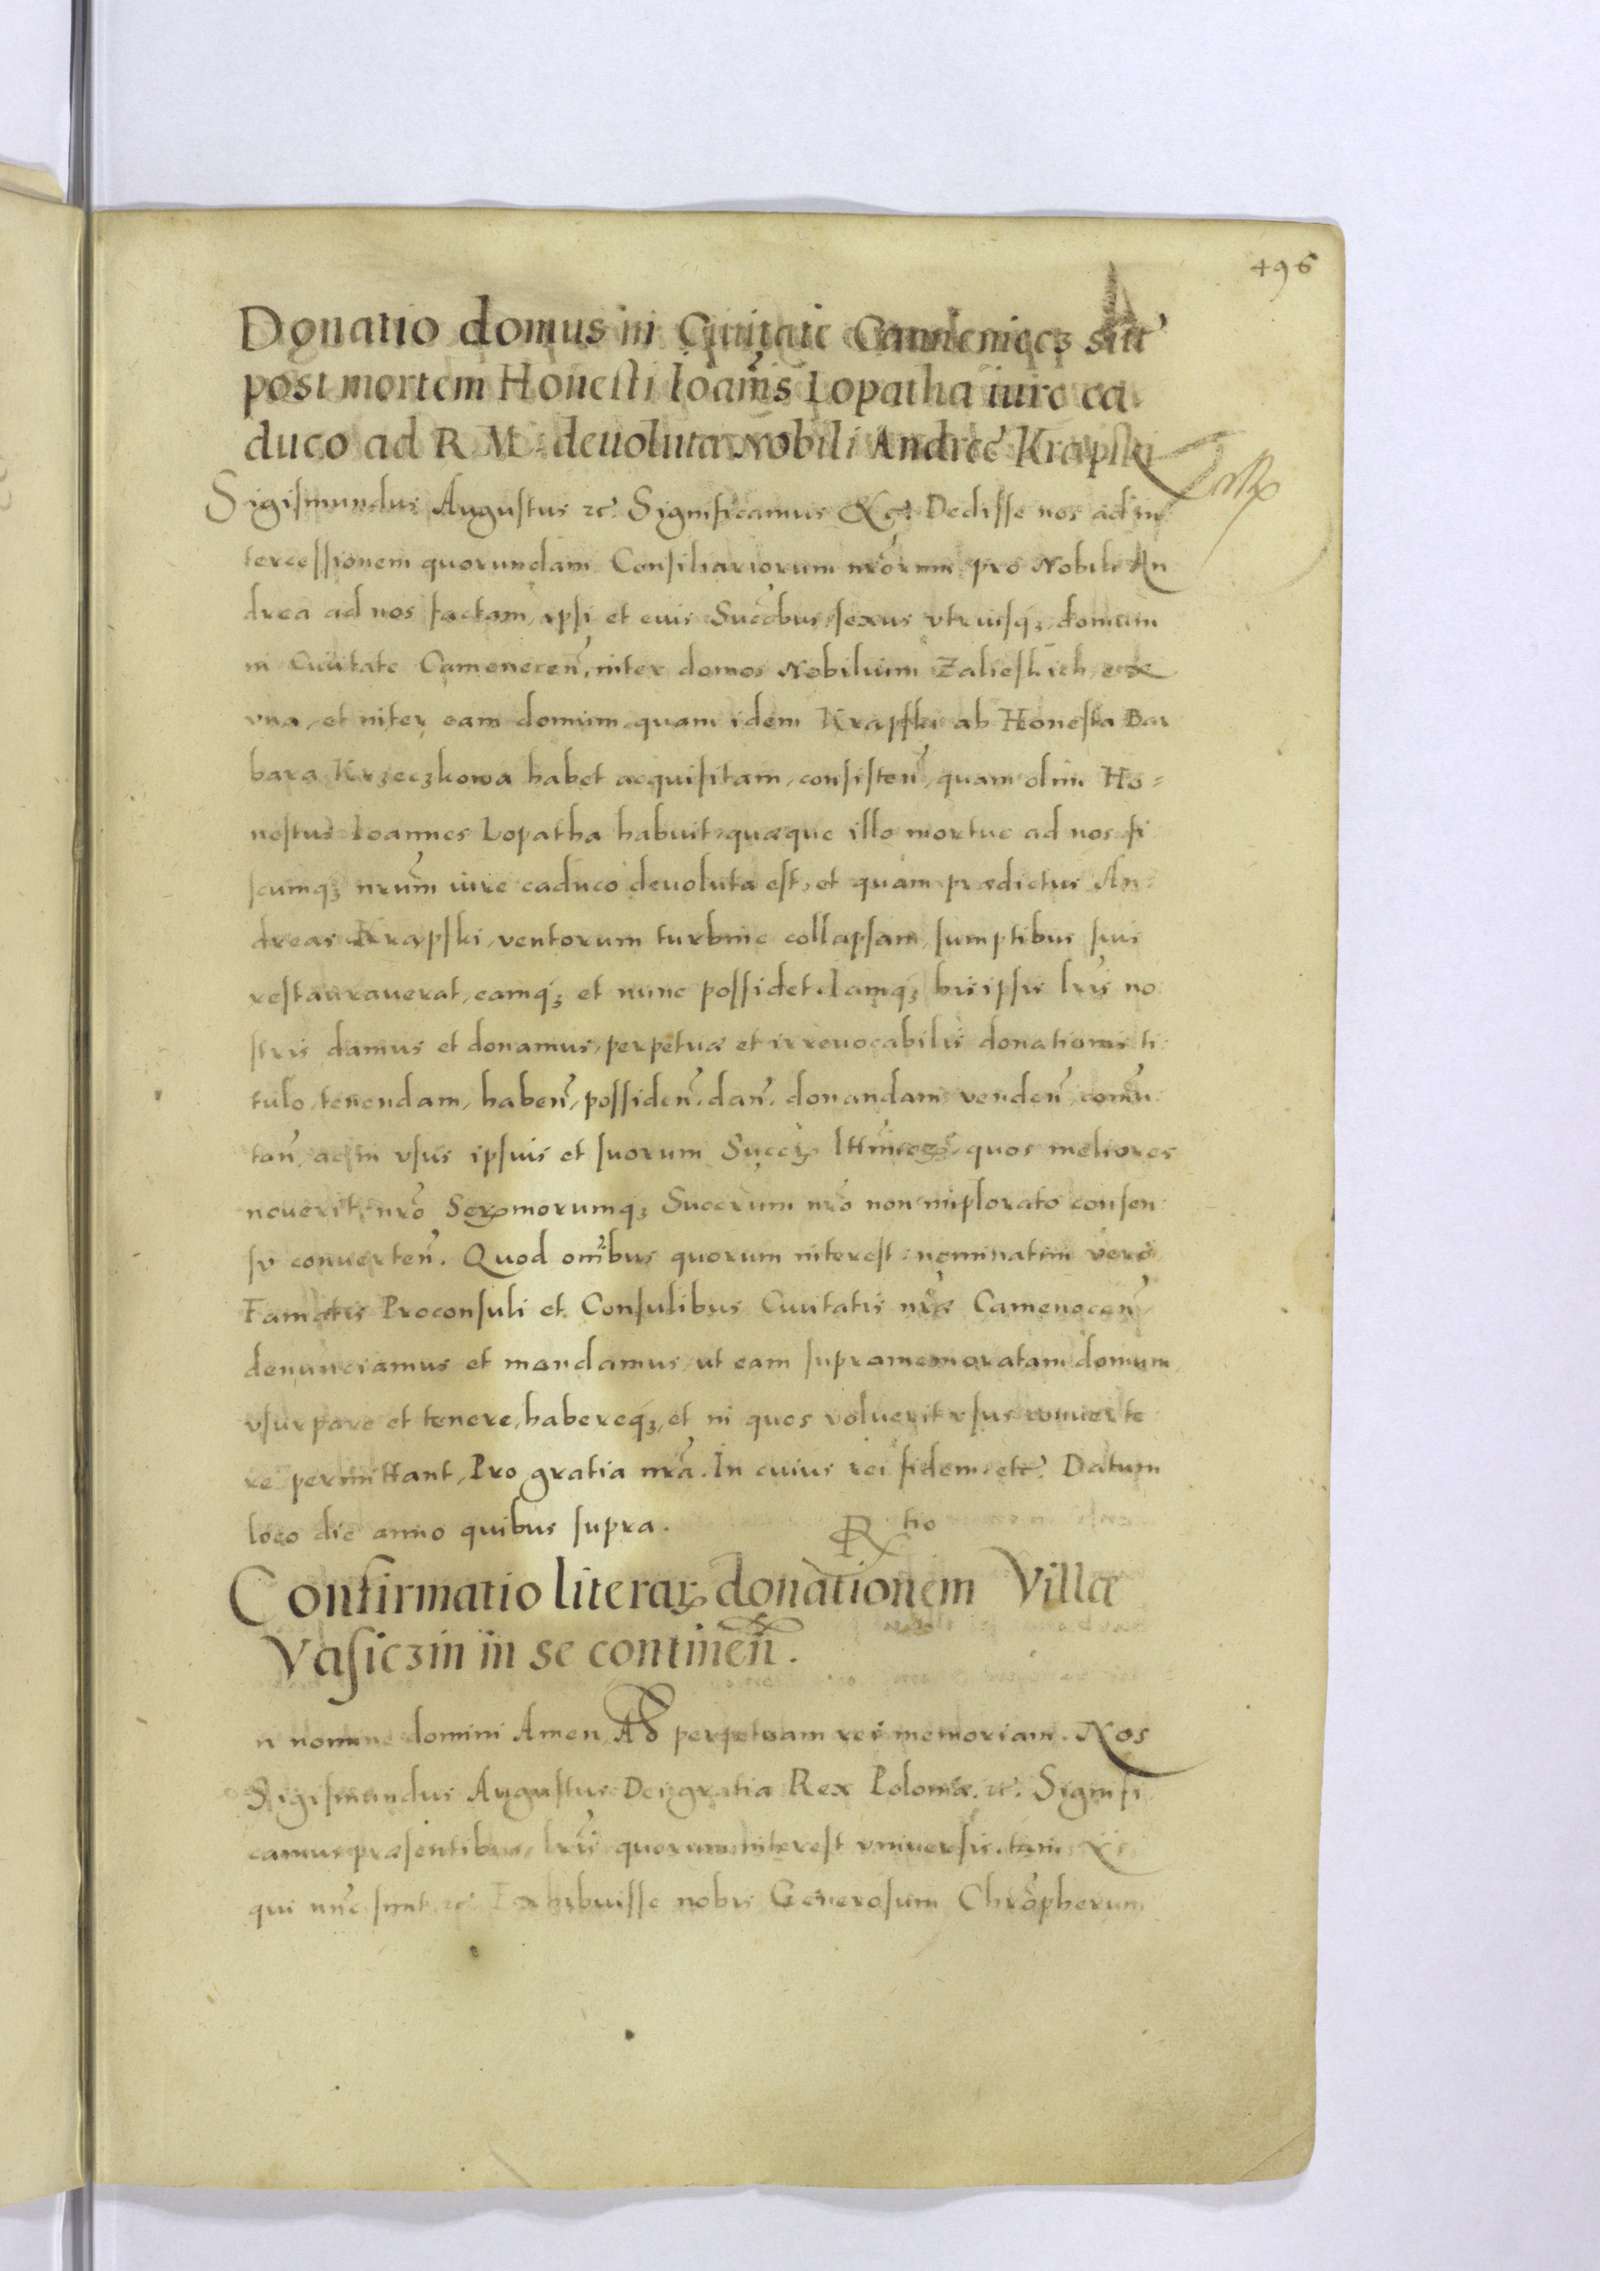 496
Donatio domus in Ciuitate Cameniecz sitæ
post mortem Honesti Ioañis Lopatha iure ca
duco ad R. M. deuoluta Nobili Andreę Krapski
Sigismundus Augustus etc. Significamus etc. Dedisse nos ad in
tercessionem quorundam Consiliariorum nrorum pro Nobili An
drea ad nos factam, ipsi et eius Succbus sexus vtriusq3, domum
in Ciuitate Camenecen, inter domos Nobilium Zalieskich, ex
vna, et inter eam domum quam idem Krapski ab Honesta Bar
bara Krzeczkowa habet acquisitam, consisten, quam olim Ho=
nestus Ioannes Lopatha habuit, quæque illo mortuo ad nos fi
scumq3 nrum iure caduco deuoluta est, et quam prædictus An
dreas Krapski, ventorum turbine collapsam, sumptibus suis
restaurauerat, eamq3 et nunc possidet. Iamq3 his ipsis lris no
stris damus et donamus, perpetuæ et irreuocabilis donationis ti
tulo, tenendam, haben, possiden, dan, donandam venden, comu
tan, ac in vsus ipsius et suorum Succr lttimor, quos meliores
nouerit, nro Sermorumq3 Succrum nro non implorato consen
su conuerten. Quod omibus quorum interest, nominatim vero
Famatis Proconsuli et Consulibus Ciuitatis nræ Camenecen,
denunciamus et mandamus, ut eam supramemoratam domum
vsurpare et tenere, habereq3, et in quos voluerit vsus conuerte
re permittant, Pro gratia nra. In cuius rei fidem etc. Datum
loco die anno quibus supra. R tio
Confirmatio literar donationem Villæ
Vasiczin in se continen.
n nomine domini Amen Ad perpetuam rei memoriam. Nos
Sigismundus Augustus Dei gratia Rex Poloniæ. etc. Signifi
camus præsentibus lris quorum interest vniuersis, tam
qui nunc sunt etc. Exhibuisse nobis Generosum Chropherum